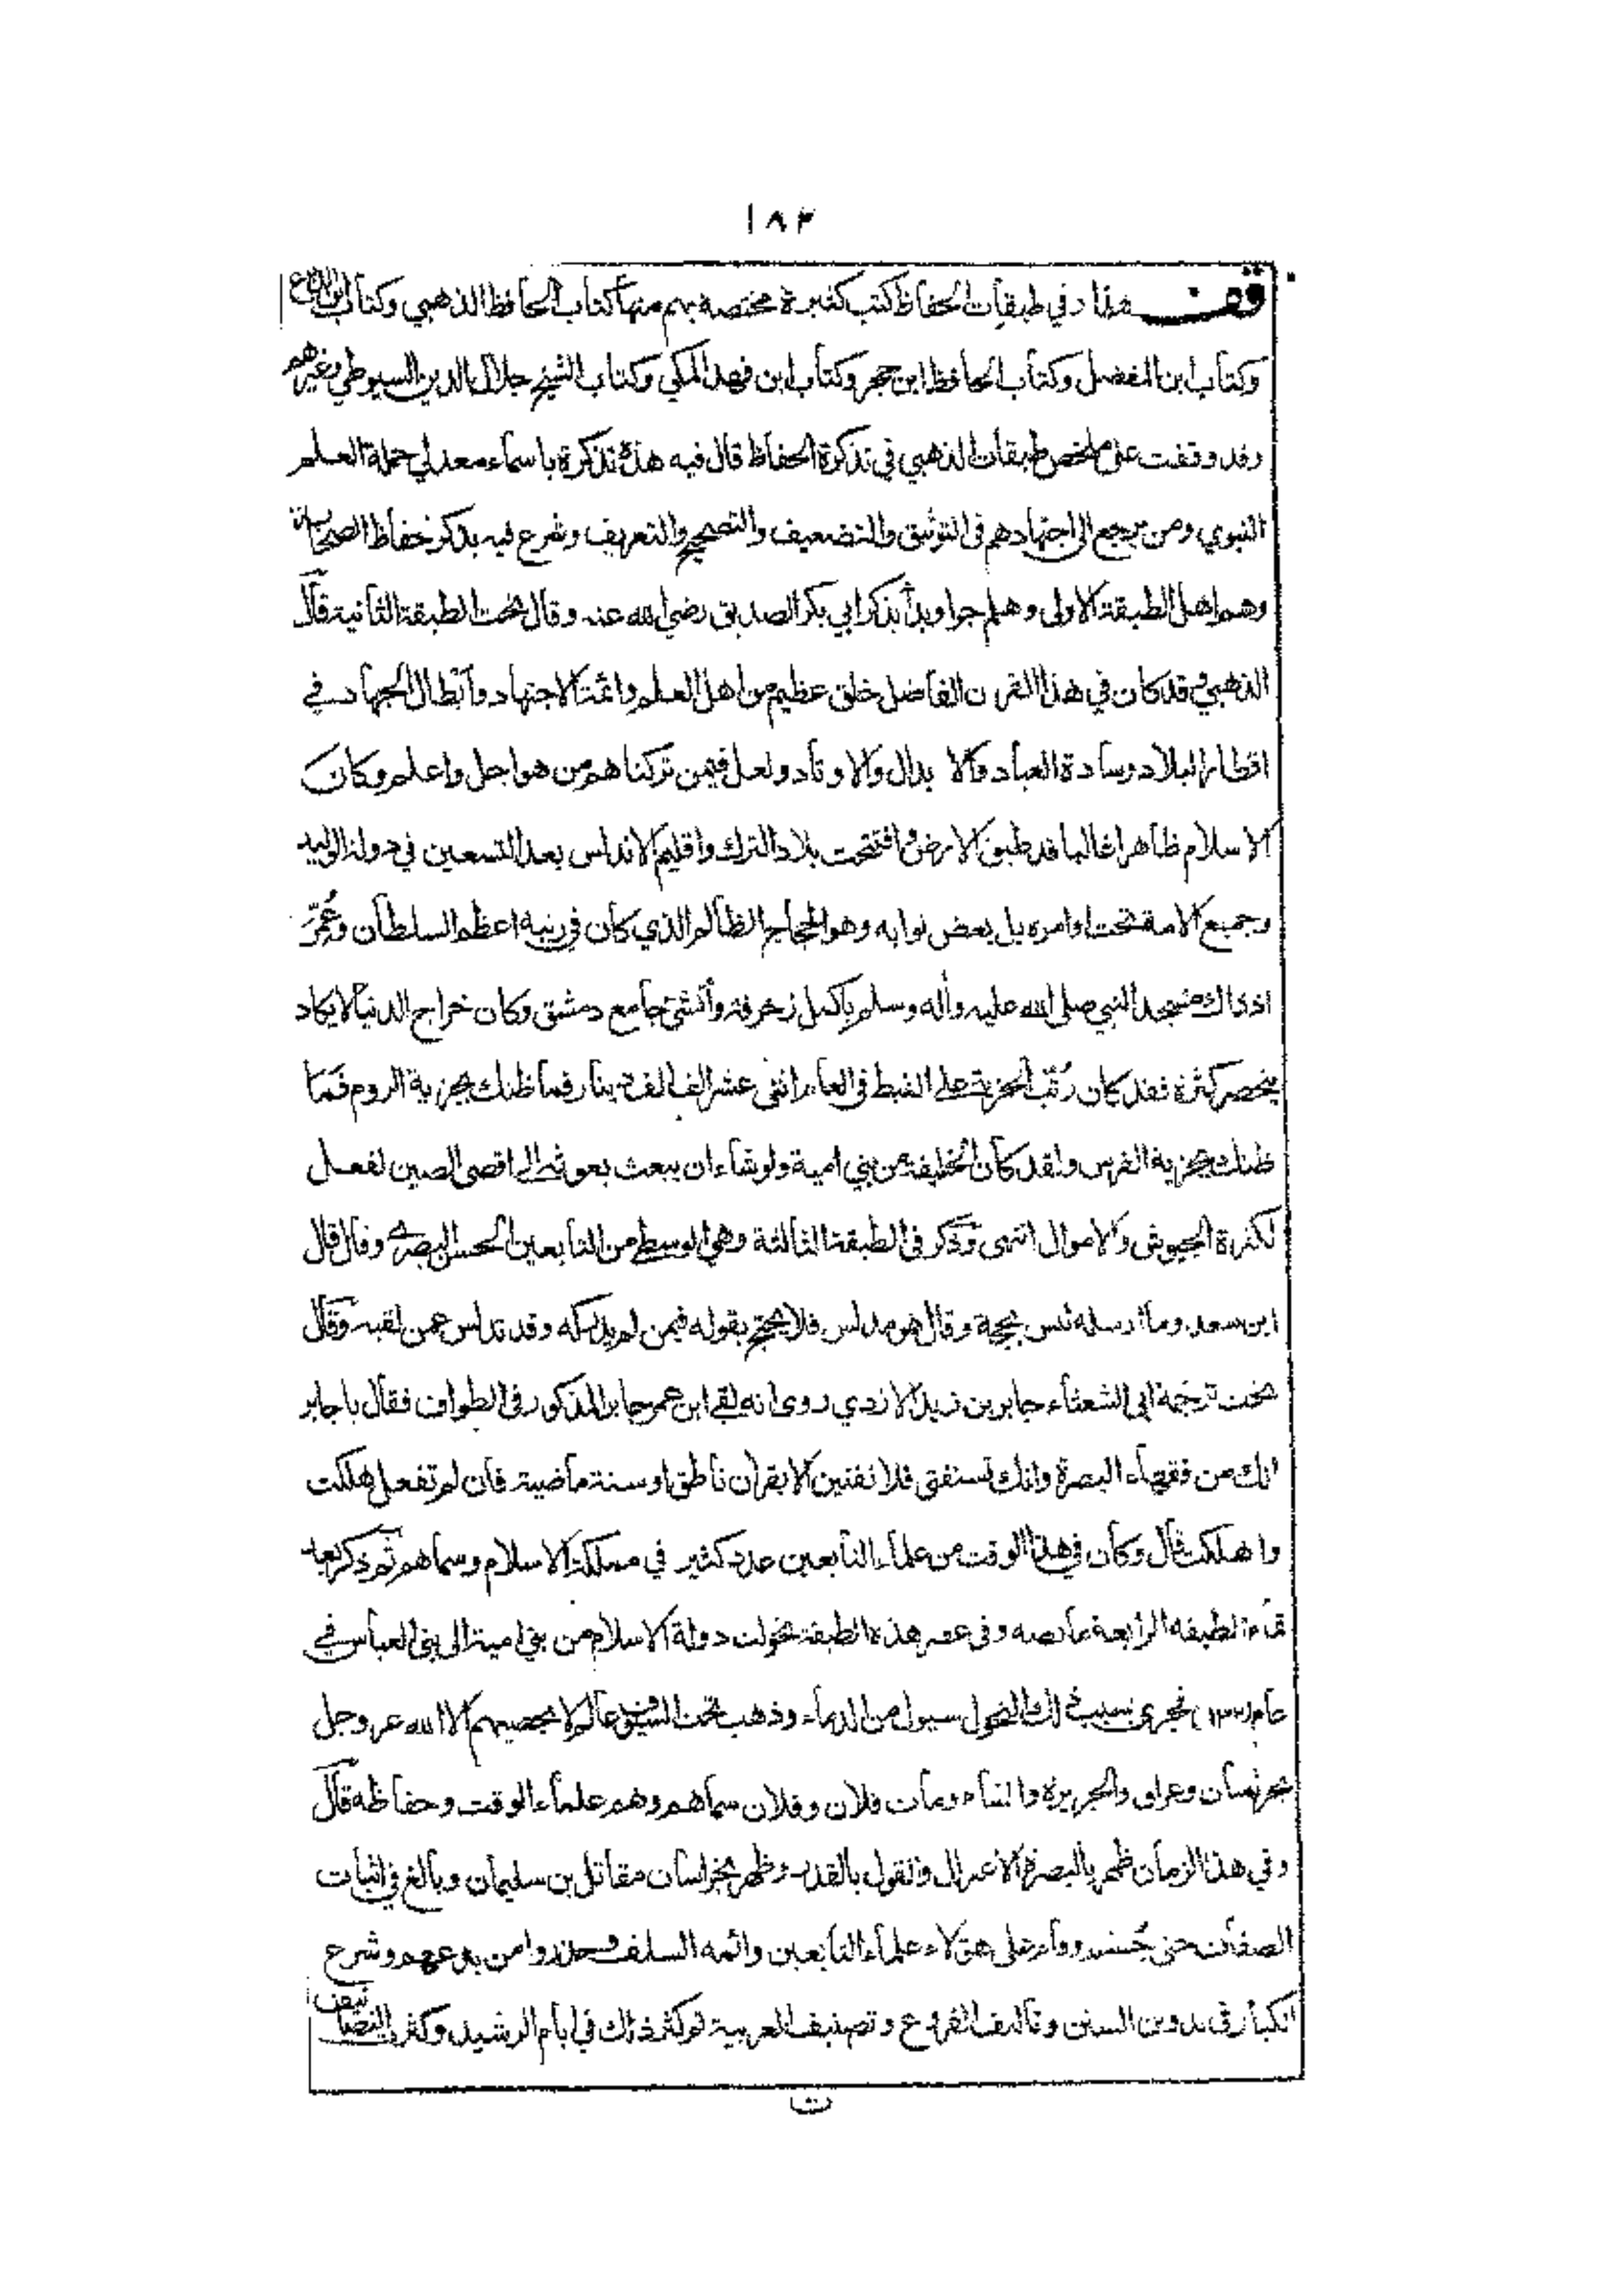 ١٨٣
قف هذا وفي طبقات الحفاظ كتب كثيرة مختصة بهم منها كتاب الحافظ الذهبي وكتاب ابن الدباغ
وكتاب ابن المفضل وكتاب الحافظ ابن حجر وكتاب ابن فهد المكي وكتاب الشيخ جلال الدين السيوطي وغيرهم
وقد وقفت على ملخص طبقات الذهبي في تذكرة الحفاظ قال فيه هذه تذكرة باسماء معدلي حملة العلم
النبوي ومن يرجع الى اجتهادهم في التوثيق والتضعيف والتصحيح والتعريف وشرع فيه بذكر حفاظ الصحابة
وهم اهل الطبقة الاولى وهلم جرا وبدأ بذكر ابي بكر الصديق رضي الله عنه وقال تحت الطبقة الثانية قال
الذهبي وقد كان في هذا القرن الفاضل خلق عظيم من اهل العلم وائمة الاجتهاد وابطال الجهاد في
اقطار البلاد وسادة العباد والا بدال والاوتاد ولعل فيمن تركناهم من هو اجل واعلم وكان
الاسلام ظاهرا غالبا قد طبق الارض وافتتحت بلاد الترك واقليم الاندلس بعد التسعين في دولة الوليد
وجميع الامة تحت اوامره بل بعض نوابه وهو الحجاج الظالم الذي كان في رتبة اعظم السلطان وعُمِّرَ
اذ ذاك مسجد النبي صلى الله عليه واله وسلم باكمل زخرفة وأنشئ جامع دمشق وكان خراج الدنيا لا يكاد
ينحصر كثرة فقد كان رُتّب الجزية على القبط في العام اثنى عشر الف الف دينار فما ظنك بجزية الروم فما
ظنك بجزية الفرس ولقد كان الخليفة من بني امية ولو شاء ان يبعث بعوثه الى اقصى الصين لفعل
لكثرة الجيوش والاموال انتهى وذكر في الطبقة الثالثة وهي الوسطى من التابعين الحسن البصري وقال قال
ابن سعد وما ارسله ليس بحجة وقال هو مدلس فلا يحتج بقوله فيمن لم يدركه وقد تدلس عمن لقيه وقال
تحت ترجمة ابي الشعثاء جابر بن زيد الازدي روى انه لقي ابن عمر جابر المذكور في الطواف فقال يا جابر
انك من فقهاء البصرة وانك تستفتى فلا تفتين الا بقرآن ناطق او سنة ماضية فان لم تفعل هلكت
واهلكت قال وكان في هذا الوقت من علماء التابعين عدد كثير في مملكة الاسلام وسماهم ثم ذكر بعد
تمام الطبقة الرابعة ما نصه وفي عصر هذه الطبقة تحولت دولة الاسلام من بني امية الى بني العباس في
عام (١٣٢) فجرى بسبب ذلك التحول سيول من الدماء وذهب تحت السيف عالم لا يحصيهم الا الله عز وجل
بخراسان وعراق والجزيرة والشام ومات فلان وفلان سماهم وهم علماء الوقت وحفاظه قال
وفي هذا الزمان ظهر بالبصرة الاعتزال والقول بالقدر وظهر بخراسان مقاتل بن سليمان وبالغ في اثبات
الصفات حتى جُسّد وقام على هؤلاء علماء التابعين وائمة السلف وحذروا من بدعهم وشرع
الكبار في تدوين السنن وتاليف الفروع وتصنيف العربية ثم كثر ذلك في ايام الرشيد وكثر التصانيف
ت